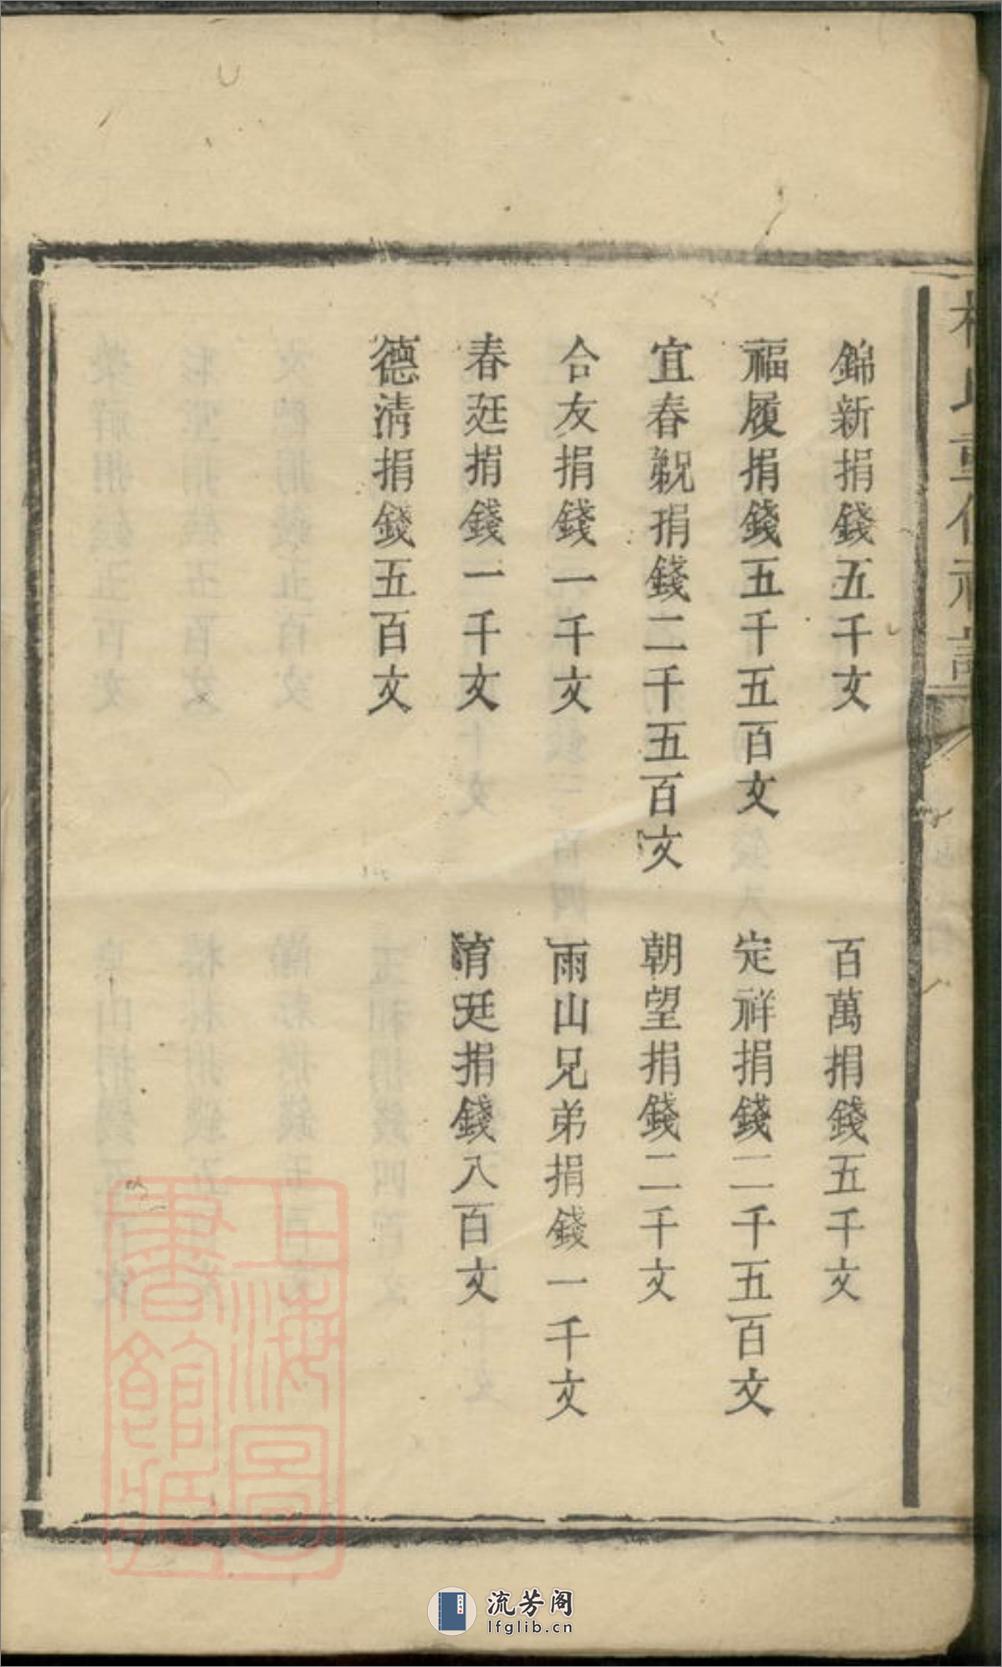 錦新捐錢五千文
百萬捐錢五千文
福履捐錢五千五百文
定祥捐錢二千五百文
宜春覣捐錢二千五百文
朝望捐錢二千文
合友捐錢一千文
雨山兄弟捐錢一千文
春廷捐錢一千文
淯廷捐錢八百文
德清捐錢五百文
上海圖書館藏
流芳阁
lfglib.cn